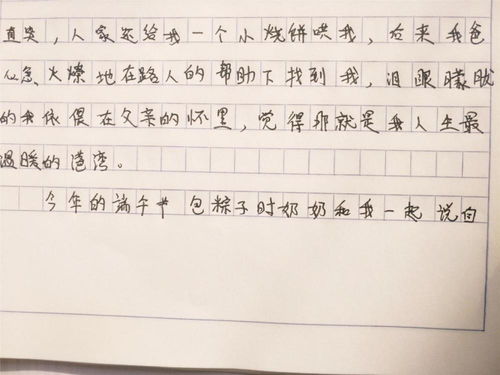 直哭，人家还给我一个小烧饼哄我，后来我爸
心急火燎地在路人的帮助下找到我，泪眼朦胧
的我依偎在父亲的怀里，觉得那就是我人生最
温暖的港湾。
今年的端午节包粽子时奶奶和我一起说白